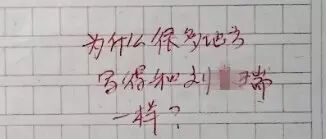 为什么很多地方
写得和刘 瑞
一样？